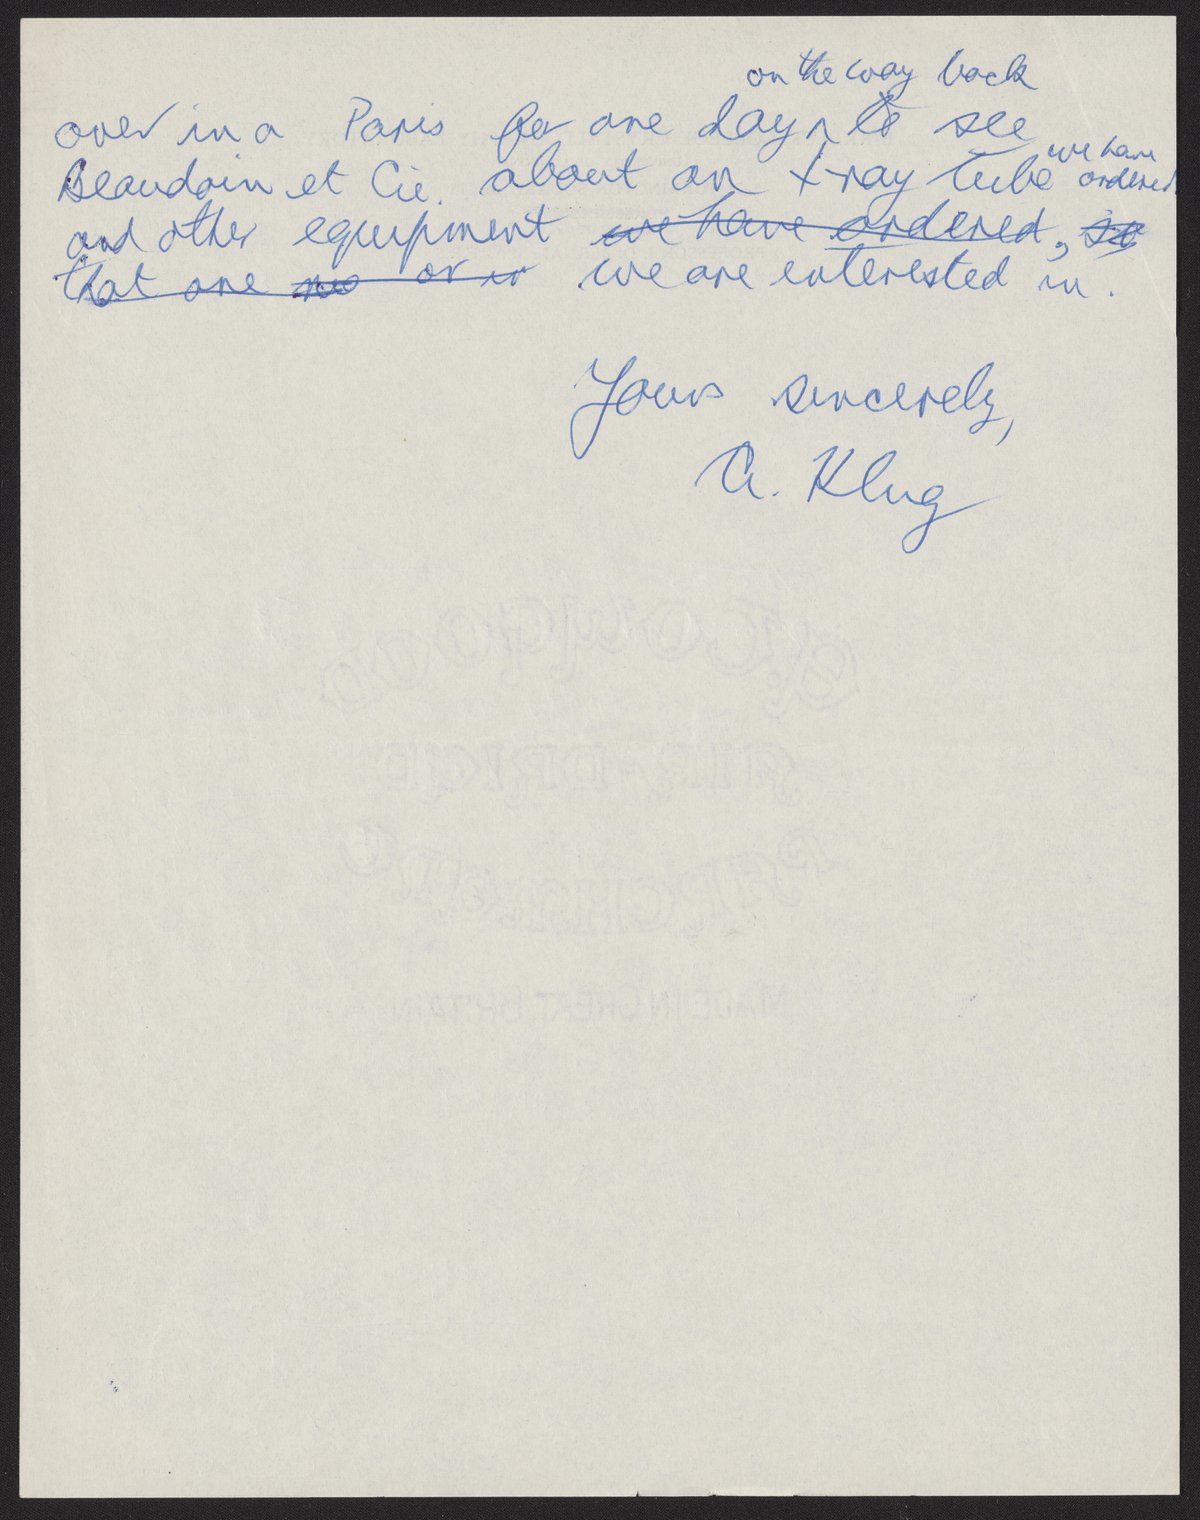 on the way back
over in a Paris for one day to see
we have
Beaudouin et Cie. about an X-ray tube ordered
and other equipment we have ordered, so
that are or in we are interested in.
Yours sincerely,
A. Klug
MADE IN GREAT BRITAIN